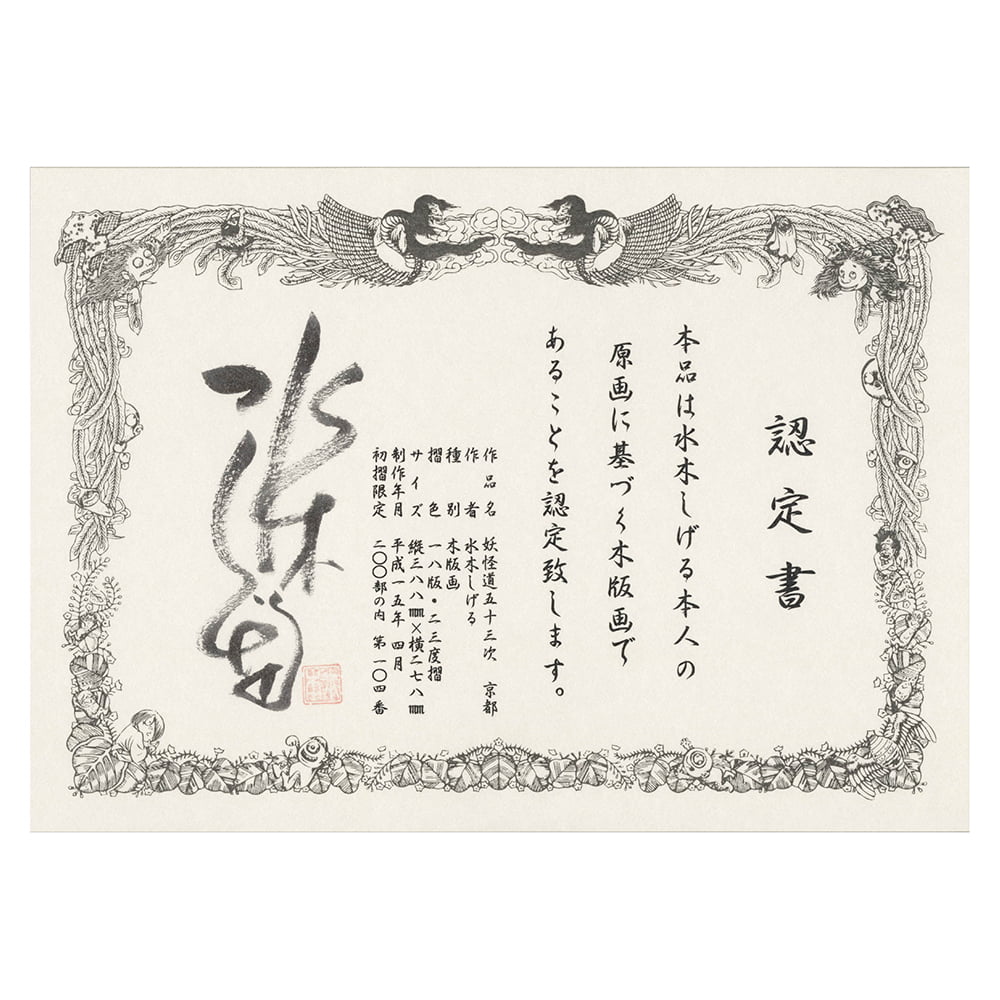 認定書
本品は水木しげる本人の
原画に基づく木版画で
あることを認定致します。
作品名 妖怪道五十三次 京都
作者 水木しげる
種別 木版画
摺色 一八版・二三度摺
サイズ 縦三八八㎜×横二七八㎜
制作年月 平成一五年 四月
初摺限定 二〇〇部の内 第一〇四番
水木茂